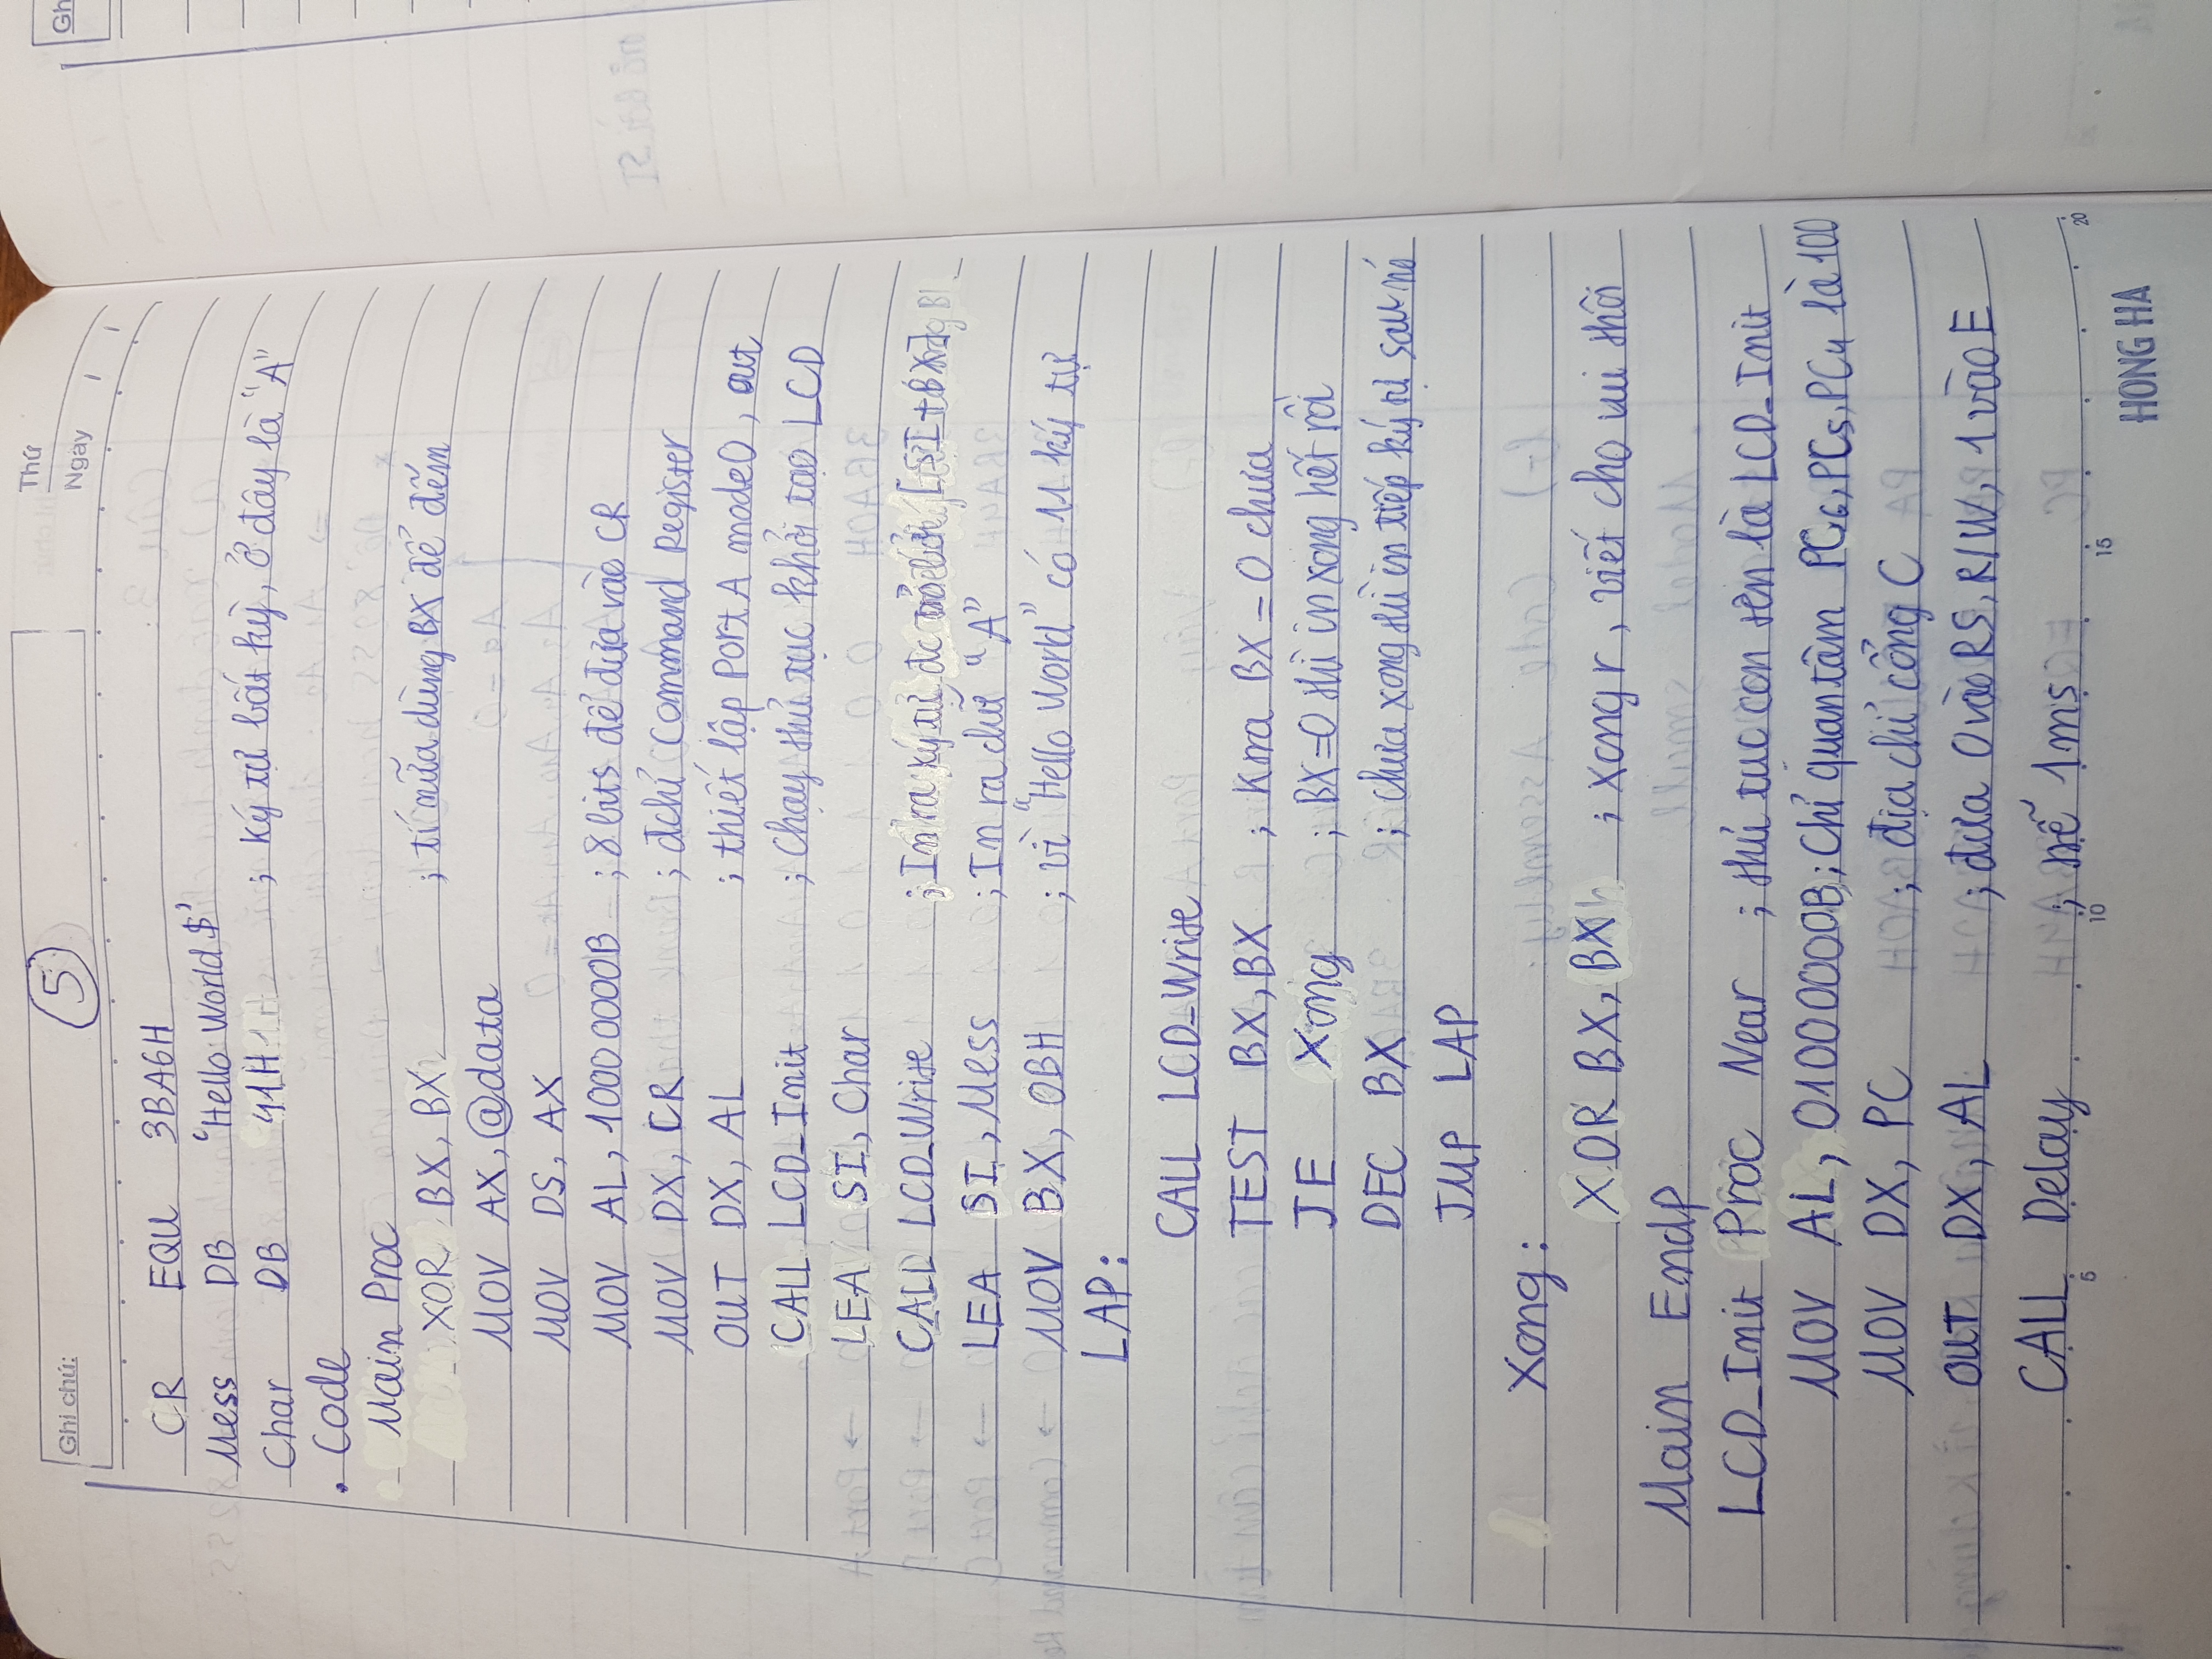 Ghi chú:
5
Thứ
Ngày
CR EQU 3BA6H
Mess DB 'Hello World$'
Char DB 41H ; ký tự bất kỳ, ở đây là "A"
. Code
Main Proc
XOR BX, BX ; tí nữa dùng BX để đếm
MOV AX, @data
MOV DS, AX
MOV AL, 10000000B ; 8 bits để đưa vào CR
MOV DX, CR ; đchỉ Command Register
OUT DX, AL ; thiết lập Port A mode0, out
CALL LCD_Init ; Chạy thủ tục khởi tạo LCD
LEA SI, Char
CALL LCD_Write ; In ra ký tự đc trỏ bởi [SI+BX]
LEA SI, Mess ; In ra chữ "A"
MOV BX, 0BH ; vì "Hello World" có 11 ký tự
LAP:
CALL LCD_Write
TEST BX, BX ; Ktra BX = 0 chưa
JE Xong ; BX=0 thì in xong hết rồi
DEC BX ; chưa xong thì in tiếp ký tự sau nó
JMP LAP
Xong:
XOR BX, BX ; xong r, viết cho vui thôi
Main Endp
LCD_Init Proc Near ; thủ tục con tên là LCD_Init
MOV AL, 01000000B ; Chỉ quan tâm PC6, PC5, PC4 là 100
MOV DX, PC ; địa chỉ cổng C
OUT DX, AL ; đưa 0 vào RS, R/W, 1 vào E
CALL Delay ; trễ 1ms
5 10 15 20
HONG HA
Gh